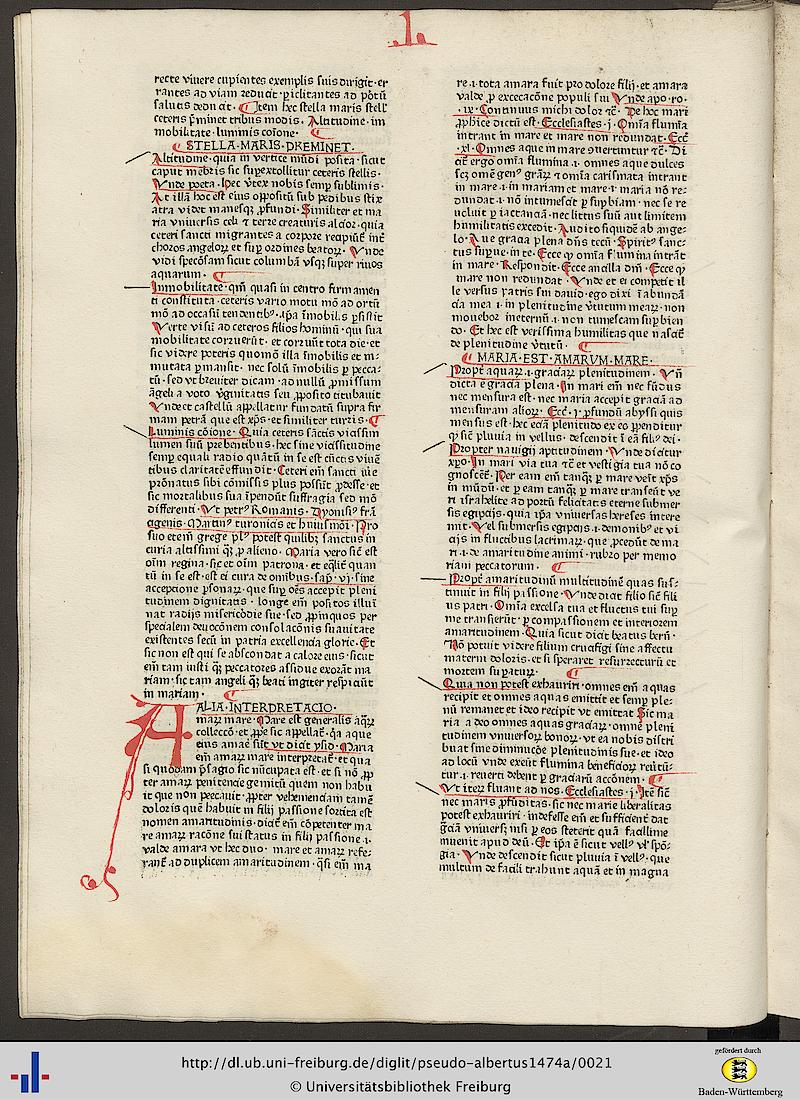 .I.
recte viuere cupientes exemplis suis dirigit· er
rantes ad viam reducit· piclitantes ad pōtū
salutis deducit· Item hec stella maris stell'
ceteris p̄minet tribus modis· Altitudine· im
mobilitate· luminis cōione·
STELLA·MARIS·PREMINET·
Altitudine· quia in vertice mūdi posita· sicut
caput mēbris sic supextollitur ceteris stellis·
Vnde poeta· Hec v̄tex nobis semp sublimis·
At illā hoc est eius oppositū sub pedibus stix
atra videt manesq; pfundi· Similiter et ma
ria vniuersis celi et terre creaturis alcior· quia
ceteri sancti migrantes a corpore
choros angeloꝝ et sup ordines beatoꝝ· Vnde
vidi specōsam sicut columbā vsq; super riuos
aquarum·
Inmobilitate· qm̄ quasi in centro firmamen
ti constituta· ceteris vario motu mō ad ortū
mō ad occasū tendentibꝰ· ip̄a īmobilis psistit
Verte visū ad ceteros filios hominū· qui sua
mobilitate corruerūt· et corruūt tota die· et
sic videre poteris quomō illa īmobilis et in-
mutata pmansit· nec solū īmobilis p pecca-
tū· sed vt breuiter dicam· ad nullū pmissum
āgeli a voto vginitatis seu pposito titubauit
Vnde et castellū appellatur fundatū supra fir
mam petrā que est xp̄s· et similiter turris·
Luminis cōione· Quia ceteris sāctis vicissim
lumen suū prebentibus· hec sine vicissitudine
semp equali radio quātū in se est cūctis viuē
tibus claritatē effundit· Ceteri em̄ sancti
prōnatus sibi cōmissis plus possūt pdesse· et
sic mortalibus sua īpendūt suffragia sed mō
differenti· Vt petrꝰ Romanis· Dyonisiꝰ frā
cigenis· Martinꝰ turonicis et huiusmōi· Pro
suo etem̄ grege plꝰ potest quilibꝫ sanctus in
curia altissimi qꝫ p alieno· Maria vero sic̄ est
oīm regina· sic et oīm patrona· et quan
tū in se est· est ei cura de omibus· sap· vj· sine
acceptione psonaꝝ· que sup oēs accepit pleni
tudinem dignitatis· longe em̄ positos illuī
nat radijs misericordie sue· sed ppinquos per
specialem deuocōnem consolacōnis suauitate
existentes secū in patria excellencia glorie· Et
sic non est qui se abscondat a calore eius· sicut
em̄ tam iusti qꝫ peccatores assidue exorāt ma
riam· sic tam angeli qꝫ beati ingiter respiciūt
in mariam·
ALIA·INTERPRETACIO·
maꝝ mare· Mare est generalis aqꝝ
colleccō· et ppe sic appellat̄· qa aque
eius amae sūt vt dicit ysid· Maria
em̄ amaꝝ mare interpretat̄· et qua
si quodam psagio sic nūcupata est· et si nō pp
ter amaꝝ penitencie gemitū quem non habu
it que non peccauit· ppter vehemenciam tamē
doloris quē habuit in filij passione sortita est
nomen amaritudinis· dicit̄ em̄ cōpetenter ma
re amaꝝ racōne sui status in filij passione· i·
valde amara vt hec duo· mare et amaꝝ refe-
rant̄ ad duplicem amaritudinem· qsi em̄ ma
re· i· tota amara fuit pro dolore filij· et amara
valde p excecacōne populi sui Vnde apo· ro·
·ix· Continuus michi dolor et̄· De hoc mari
pphice dictū est· Ecclesiastes· j· Om̄ia flumīa
intrant in mare et mare non redundat· Ecc̄
·xl· Omnes aque in mare ꝯuertuntur et̄· Di
cit̄ ergo om̄ia flumina· i· omnes aque dulces
scꝫ omē genꝰ graꝝ et om̄ia carismata intrant
in mare· i· in mariam et mare· i· maria nō re-
dundat· i· nō intumescit p supbiam· nec se re
uoluit p iactanciā· nec littus suū aut limitem
humilitatis excedit· Audito siquidē ab ange-
lo· Aue gracia plena dn̄s tecū· Spiritꝰ sanc-
tus supue· in te· Ecce qꝫ om̄ia flumina intrāt
in mare· Respondit· Ecce ancilla dn̄i· Ecce qꝫ
mare non redundat· Vnde et ei competit il
le versus patris sui dauid· ego dixi ī abundā
cia mea· i· in plenitudine v̄tutum meaꝝ· non
mouebor ineternū· i· non tumescam supbien
do· Et hec est verissima humilitas que nascit̄
de plenitudine v̄tutū·
MARIA·EST·AMARVM·MARE·
Propt̄ aquaꝝ· i· graciaꝝ plenitudinem· Vn̄
dicta ē gracia plena· In mari em̄ nec fūdus
nec mensura est· nec maria accepit graciā ad
mensuram alioꝝ· Ecc̄· j· pfundū abyssi quis
mensus est· hec eciā plenitudo ex eo pꝫenditur
qꝫ sic̄ pluuia in vellus· descendit ī eā filꝰ dei·
Propter nauigij aptitudinem· Vnde dicitur
xp̄o· In mari via tua et̄ et vestigia tua nō co
gnoscēt· Per eam em̄ tanqꝫ p mare veīt xp̄s
in mūdū· et p eam tanqꝫ p mare transeūt ve
ri israhelite ad portū felicitatis eterne submer
sis egipcijs· quia ip̄a vniuersas hereses intere
mit· Vel submersis egipcijs· i· demonibꝰ et vi
cijs in fluctibus lacrimaꝝ· que pcedūt de ma
ri· i· de amaritudine animi· rubro per memo
riam peccatorum·
Propt̄ amaritudinū multitudinē quas sus-
tinuit in filij passione· Vnde dicat filio sic̄ fili
us patri· Om̄ia excelsa tua et fluctus tui sup
me transierūt· p compassionem et interiorem
amaritudinem· Quia sicut dicit beatus bern̄·
Nō potuit videre filium crucifigi sine affectu
materni doloris· et si speraret resurrecturū et
mortem supaturꝫ·
Quia non potest exhauriri· omnes em̄ aquas
recipit et omnes aquas emittit et semp ple-
nū remanet et ideo recipit vt emittat· Sic ma
ria a deo omnes aquas graciaꝝ· omnē pleni
tudinem vniuersoꝝ bonoꝝ· vt ea nobis distri
buat sine diminucōe plenitudinis sue· et ideo
ad locū vnde exeūt flumina beneficioꝝ reūtū-
tur· i· reuerti debent p graciarū accōnem·
Vt iteꝝ fluant ad nos· Ecclesiastes· j· Itē sic̄
nec maris pfūditas· sic nec marie liberalitas
potest exhauriri· indefesse em̄ et sufficient̄ dat
grām vniuersꝫ· nisi p eos steterit quā facillime
inuenit apud deū· Et ip̄a ē sicut vellꝰ vl' spō-
gia· Vnde descendit sicut pluuia ī vellꝰ· que
multum de facili trahunt aquā et in magna
http://dl.ub.uni-freiburg.de/diglit/pseudo-albertus1474a/0021
© Universitätsbibliothek Freiburg
gefördert durch
Baden-Württemberg